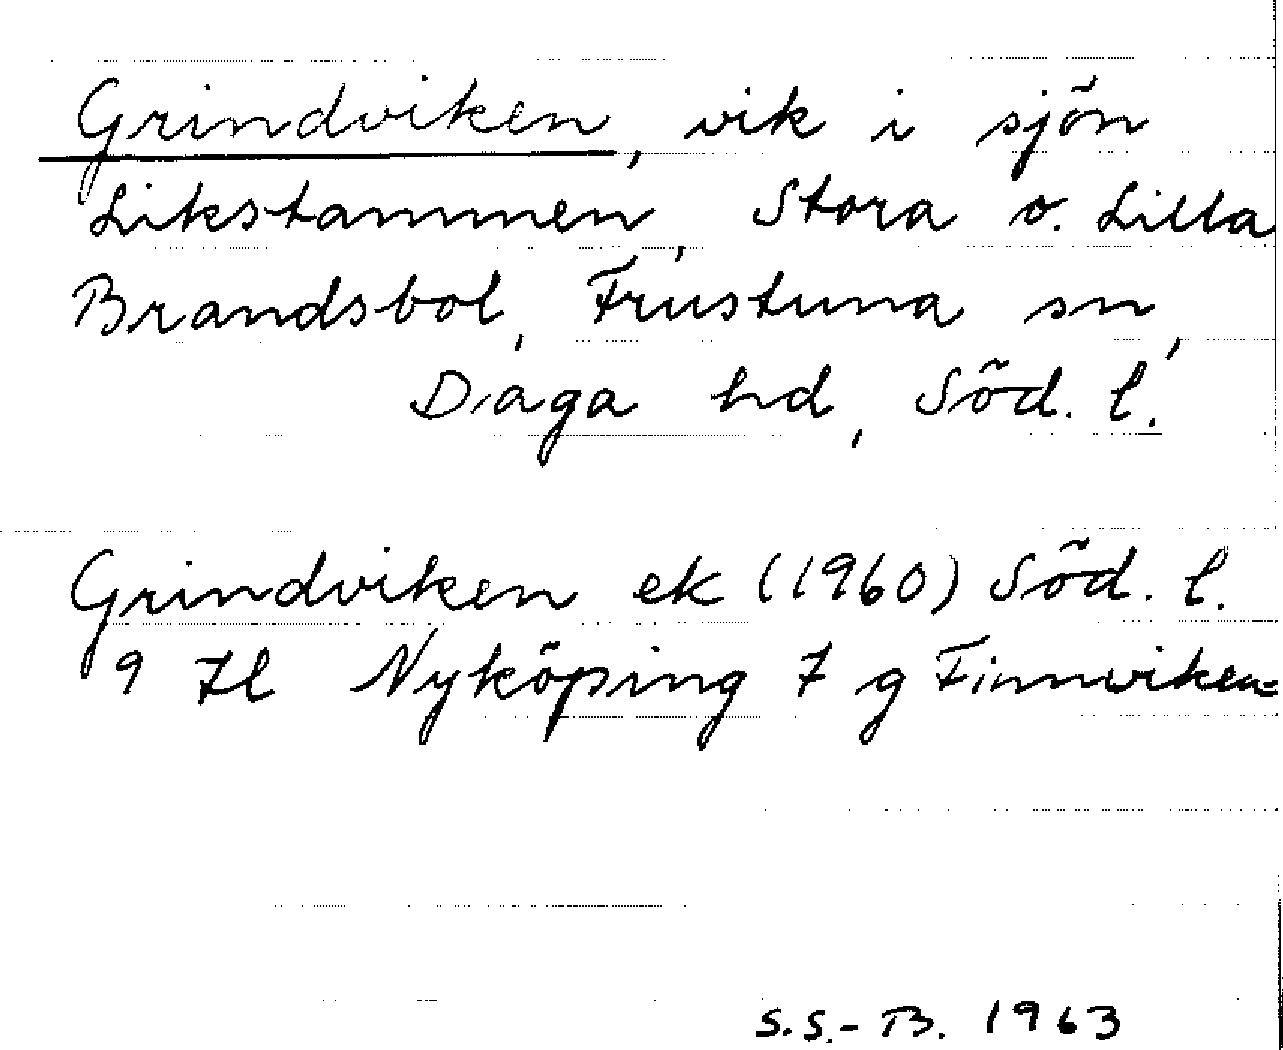 Grindviken, vik i sjön
Likstammen, Stora o. Lilla
Brandsbol, Frustuna sn,
Daga hd, Söd. l.
Grindviken ek (1960) Söd. l.
9 Il Nyköping 7 g Finnviken=
S.S.-B. 1963